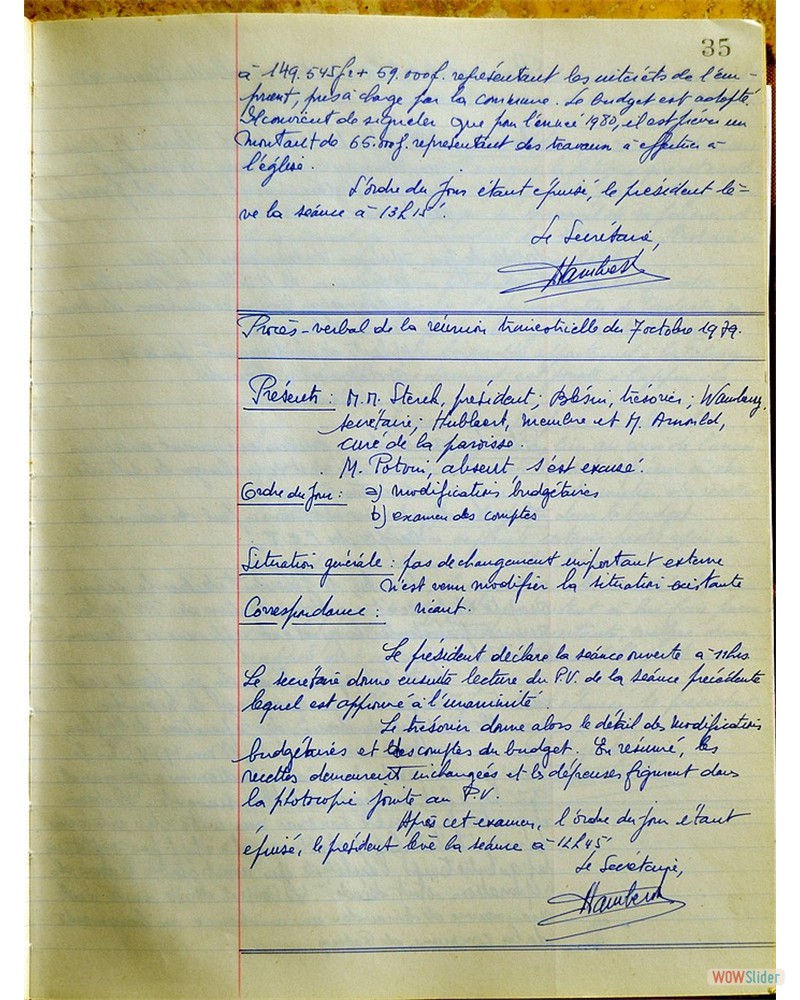 35
à 149.545f2 + 59.000f. représentant les intérêts de l'em-
prunt, pris à charge par la commune. Le budget est adopté.
Il convient de signaler que pour l'année 1980, il est prévu un
montant de 65.000f. représentant des travaux à effectuer à
l'église.
L'ordre du jour étant épuisé, le président lè-
ve la séance à 13h15'.
Le Secrétaire,
Procès-verbal de la réunion trimestrielle du 7 octobre 1979.
Présents : M.M. Sterck, président; Blésin, trésorier;
secrétaire; Hublaert, membre et M. Arnould,
curé de la paroisse.
M. Potvin, absent, s'est excusé.
Ordre du Jour : a) modifications budgétaires
b) examen des comptes
Situation générale : pas de changement important externe
n'est venu modifier la situation existante
Correspondance : néant.
Le président déclare la séance ouverte à 11hrs
Le secrétaire donne ensuite lecture du P.V. de la séance précédente
lequel est approuvé à l'unanimité.
Le trésorier donne alors le détail des modifications
budgétaires et des comptes du budget. En résumé, les
recettes demeurent inchangées et les dépenses figurent dans
la photocopie jointe au P.V.
Après cet examen, l'ordre du jour étant
épuisé, le président lève la séance à 12h45'
Le Secrétaire,
WOWSlider